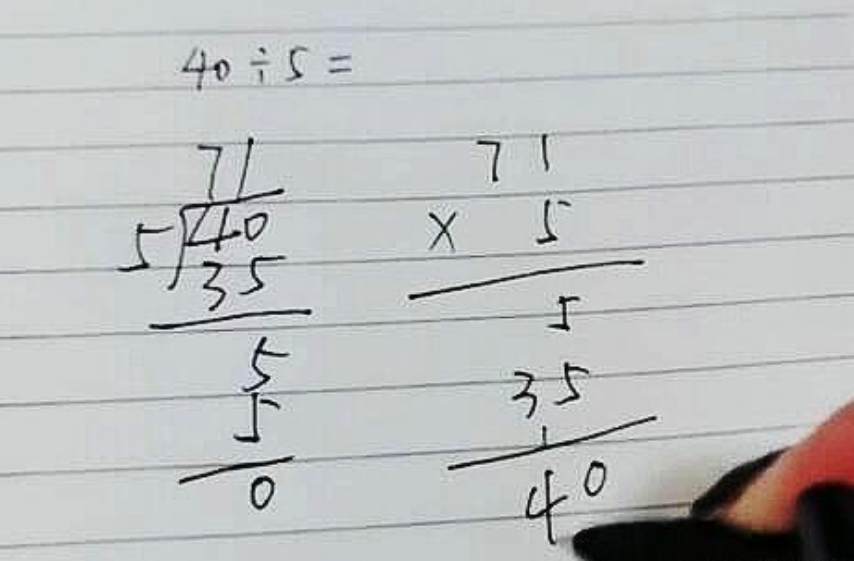 40÷5=
71
5)40
35
5
5
0
71
× 5
5
35
1
40